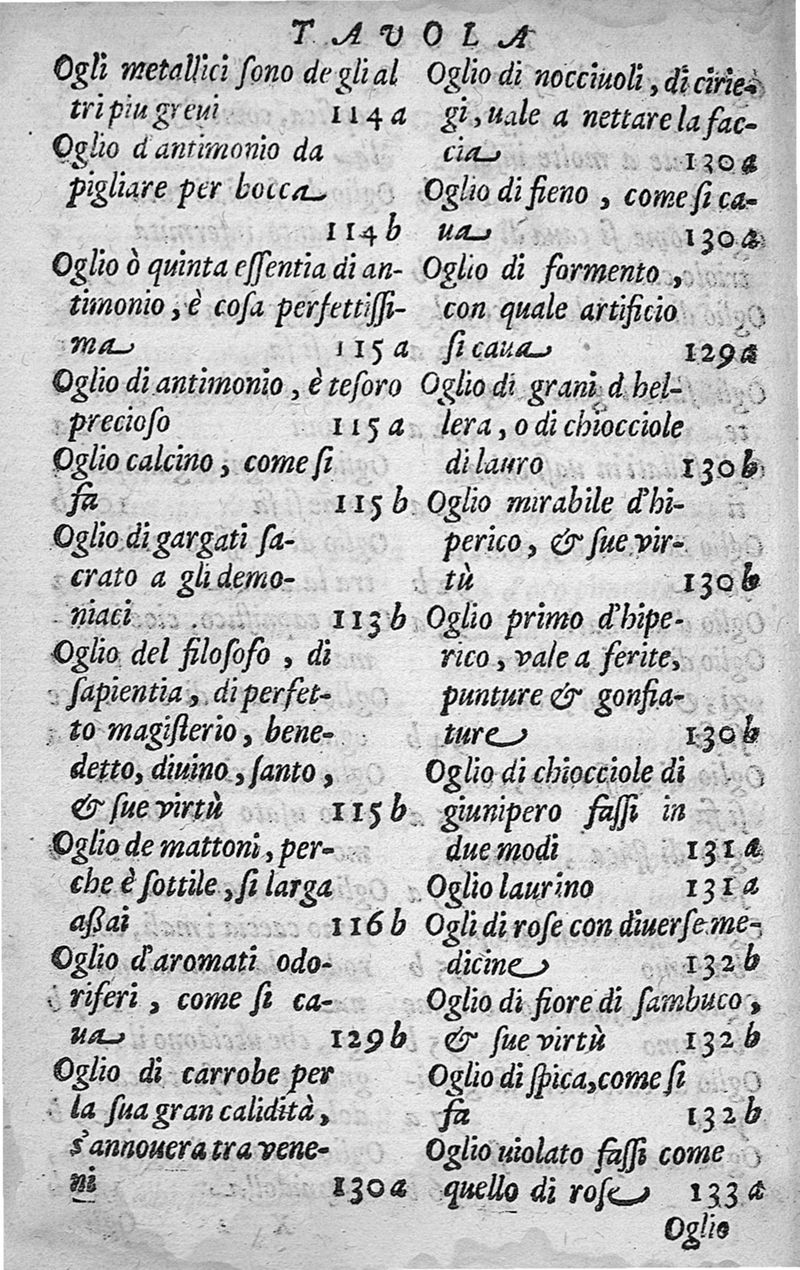 TAVOLA
Ogli metallici ſono de gli al
tri piu greui 114 a
Oglio d'antimonio da
pigliare per bocca
114 b
Oglio ò quinta eſſentia di an-
timonio, è coſa perfettiſſi-
ma 115 a
Oglio di antimonio, è teſoro
precioſo 115 a
Oglio calcino, come ſi
fa 115 b
Oglio di gargati ſa-
crato a gli demo-
niaci 113 b
Oglio del filoſofo, di
ſapientia, di perfet-
to magiſterio, bene-
detto, diuino, ſanto,
& ſue virtù 115 b
Oglio de mattoni, per-
che è ſottile, ſi larga
aßai 116 b
Oglio d'aromati odo-
riferi, come ſi ca-
ua 129 b
Oglio di carrobe per
la ſua gran calidità,
s'annouera tra vene-
ni 130 a
Oglio di nocciuoli, di cirie-
gi, uale a nettare la fac-
cia 130 a
Oglio di fieno, come ſi ca-
ua 130 a
Oglio di formento,
con quale artificio
ſi caua 129 a
Oglio di grani d hel-
lera, o di chiocciole
di lauro 130 b
Oglio mirabile d'hi-
perico, & ſue vir-
tù 130 b
Oglio primo d'hipe-
rico, vale a ferite,
punture & gonfia-
ture 130 b
Oglio di chiocciole di
giunipero faſſi in
due modi 131 a
Oglio laurino 131 a
Ogli di roſe con diuerſe me-
dicine 132 b
Oglio di fiore di ſambuco,
& ſue virtù 132 b
Oglio di ſpica, come ſi
fa 132 b
Oglio uiolato faſſi come
quello di roſe 133 a
Oglio